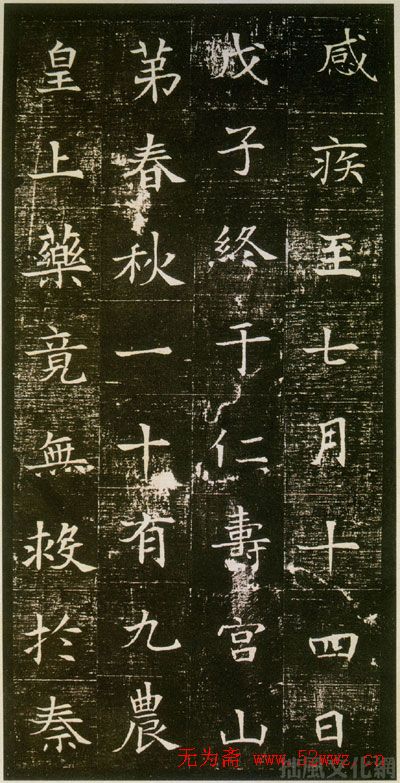 感疾至七月十四日
戊子終于仁壽宮山
苐春秋一十有九農
皇上藥竟無救於秦
无为斋 www.52wwz.cn
拙風文化網